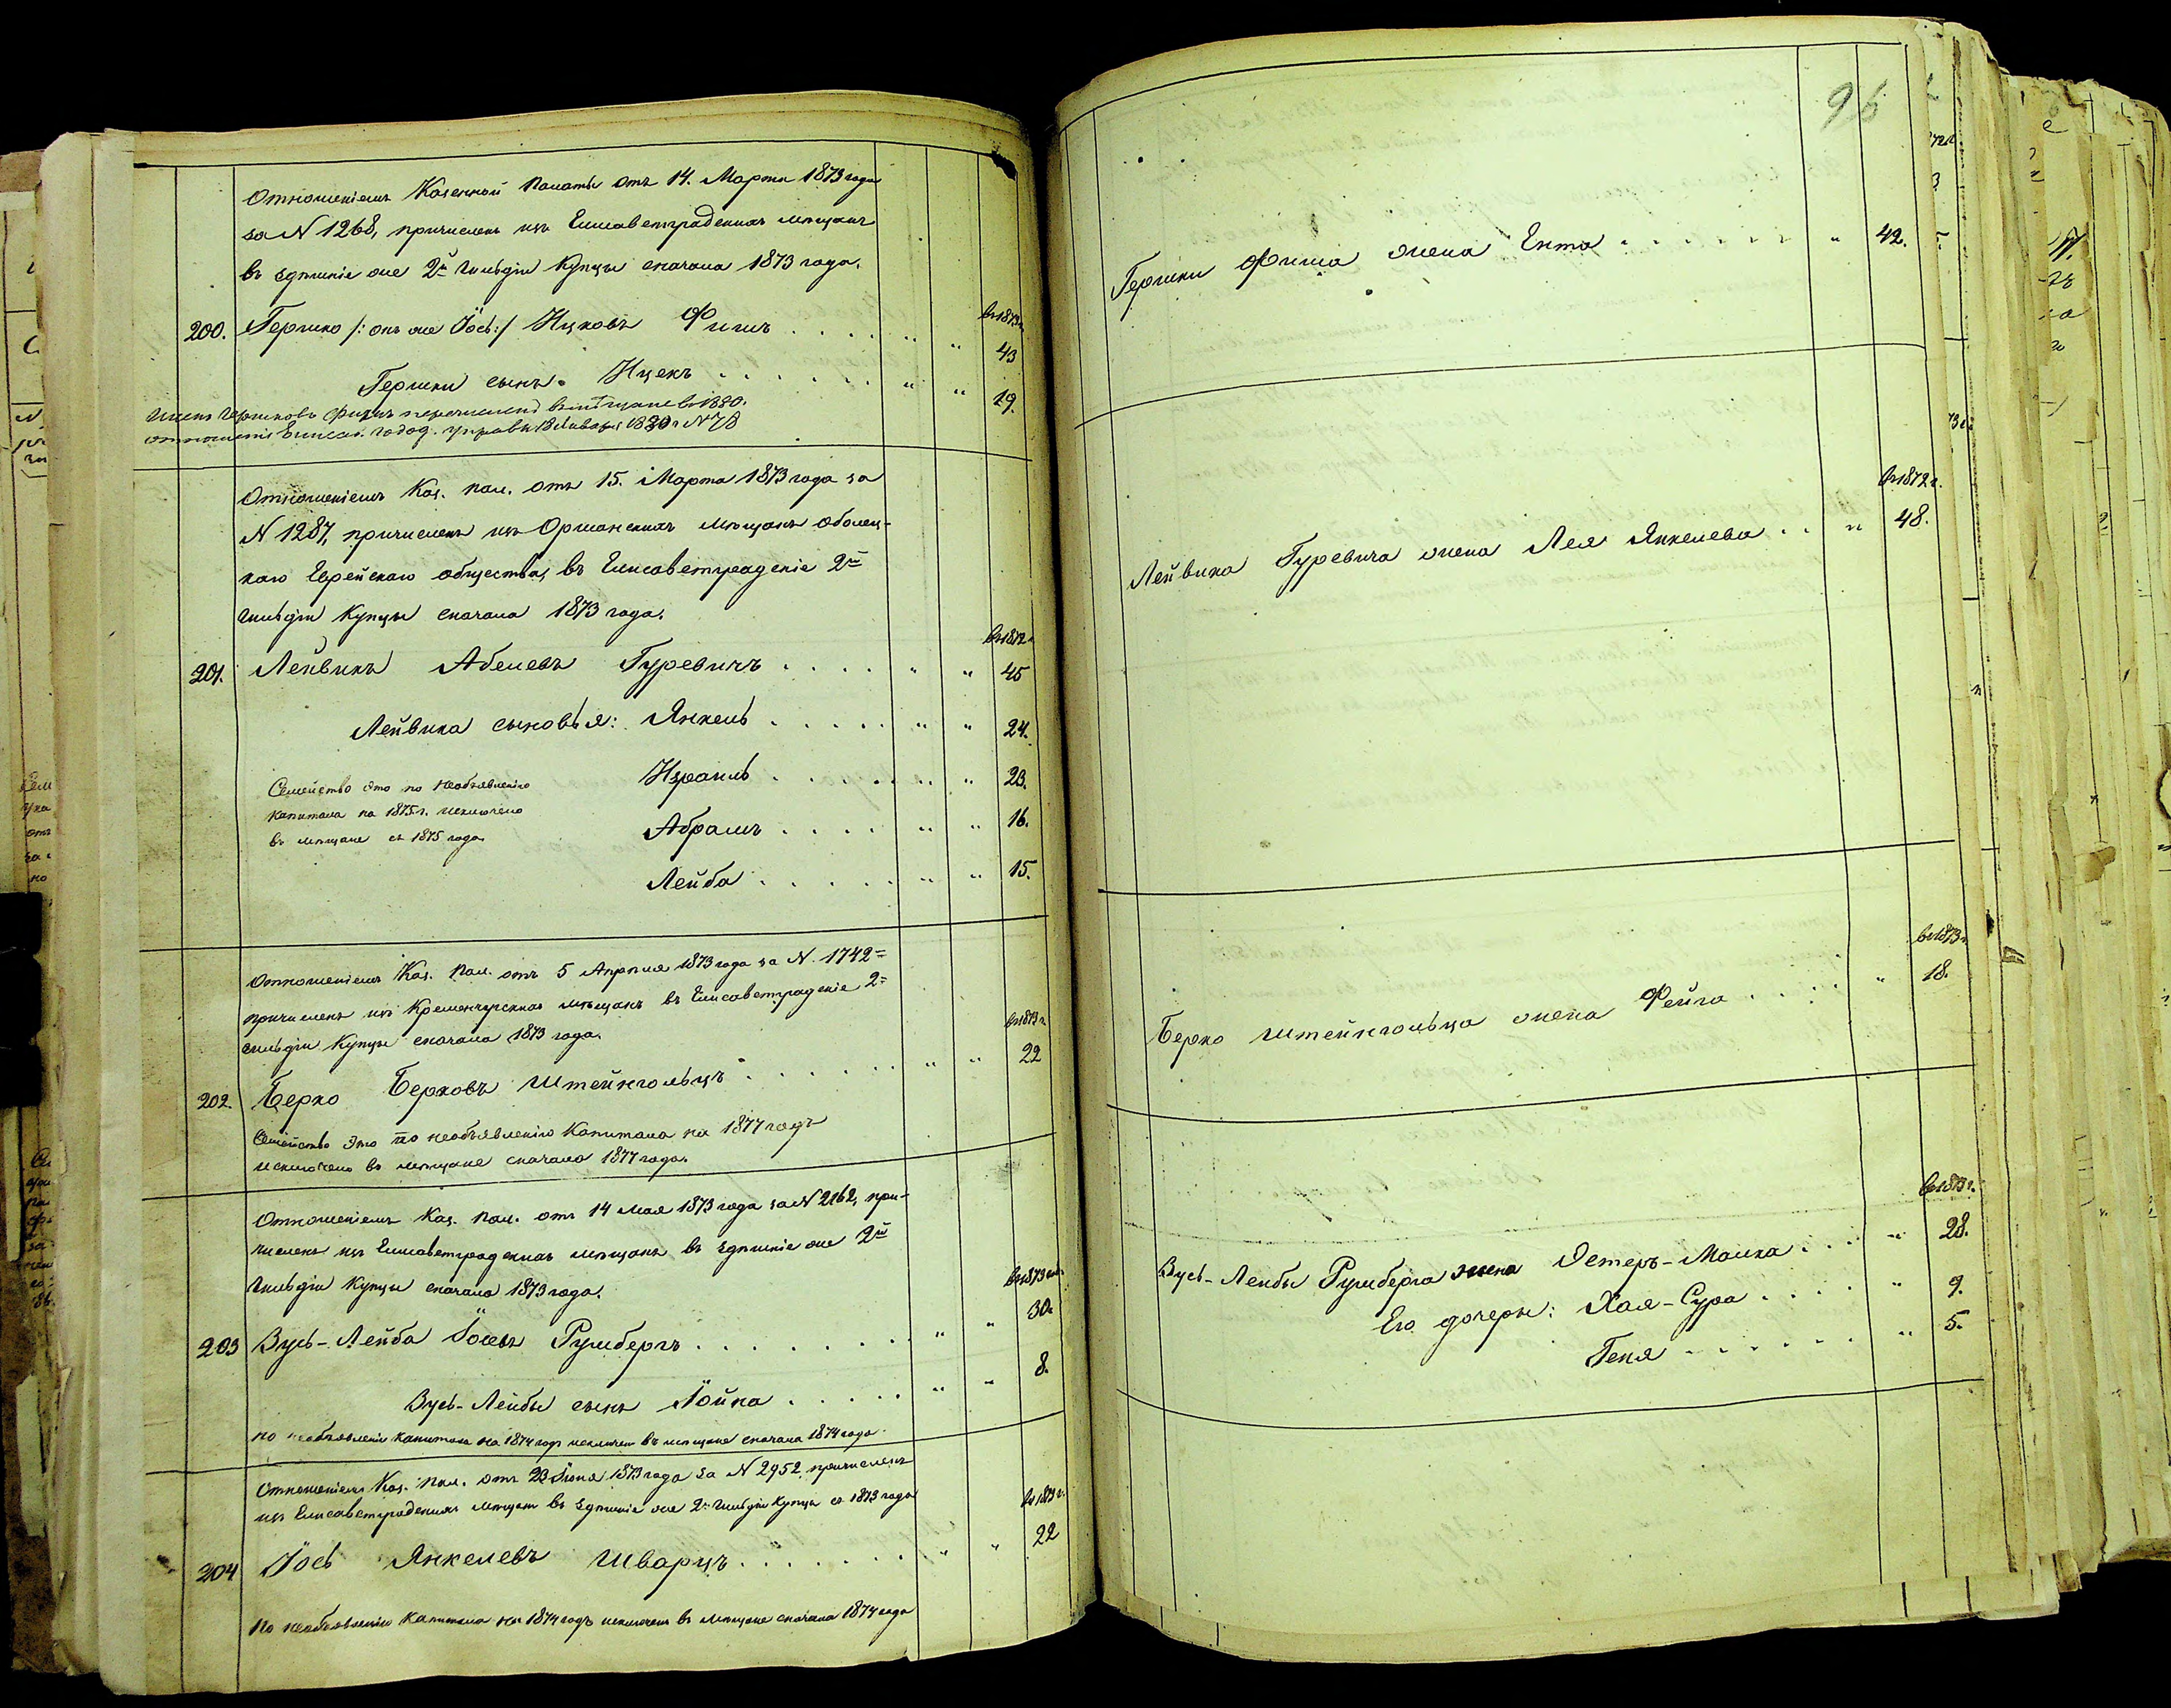 Отношеніемъ Казенной Палаты отъ 14. Марта 1873 года
за N 1268, причисленъ изъ Елисаветградскихъ мѣщанъ
въ здѣшніе же 2й Гильдіи Купцы сначала 1873 года.
въ 1873 г.
200. Гершко /: онъ же Іось :/ Ицковъ Фишъ . . . . " " 43
Гершки сынъ. Ицекъ . . . . . . " " 19.
Ицекъ Гершковъ Фишъ перечисленъ въ мѣщане въ 1880.
Января 1880 г N 78
Отношеніемъ Каз. Пал. отъ 15. Марта 1873 года за
N 1287, причисленъ изъ Оршанскихъ мѣщанъ Оболец-
каго Еврейскаго общества, въ Елисаветградскіе 2й
Гильдіи Купцы сначала 1873 года.
въ 1872 г.
201. Лейвикъ Абелевъ Гуревичъ . . . . " " 45
Лейвика сыновья: Янкель . . . . . " " 24.
Израиль . . . . . . " 23.
Абрамъ . . . . " " 16.
Лейба . . . . . " " 15.
Семейство это по необъявленію
капитала на 1875 г. исключено
въ мѣщане съ 1875 года.
Отношеніемъ Каз. Пал. отъ 5 Апрѣля 1873 года за N. 1742
причисленъ изъ Кременчугскихъ мѣщанъ въ Елисаветградскіе 2й
Гильдіи Купцы сначала 1873 года.
въ 1873 г.
202. Берко Берковъ Штейнгольцъ . . . . . . " " 22
Семейство это по необъявленію Капитала на 1877 годъ
исключено въ мѣщане сначала 1877 года.
Отношеніемъ Каз. Пал. отъ 14 Мая 1873 года за N 2162, при-
численъ изъ Елисаветградскихъ мѣщанъ въ здѣшніе же 2й
Гильдіи Купцы сначала 1873 года.
въ 1873
203 Вусь-Лейба Іосевъ Румбергъ . . . . . . . " " 30.
Вусь-Лейбы сынъ Іойна . . . . . " " 8.
по необъявленію капитала на 1874 годъ исключенъ въ мѣщане сначала 1874 года
Отношеніемъ Каз. Пал. отъ 23 Іюня 1873 года за N 2952, причисленъ
изъ Елисаветградскихъ мѣщанъ въ здѣшніе же 2й Гильдіи Купцы съ 1873 года
въ 1873 г.
204 Іось Янкелевъ Шварцъ . . . . . . . " " 22
По необъявленію капитала на 1874 годъ исключенъ въ мѣщане сначала 1874 года
Гершки Фиша жена Ента . . . . . . . " 42.
въ 1872 г.
Лейвика Гуревича жена Лея Янкелева . . " 48.
въ 1873 г.
Берко Штейнгольца жена Фейга . . . . . " 18.
въ 1873 г.
Вусь-Лейбы Румберга жена Эстеръ-Малка . . . " 28.
Его дочери: Хая-Сура . . . . " 9.
Геня . . . . . . " 5.